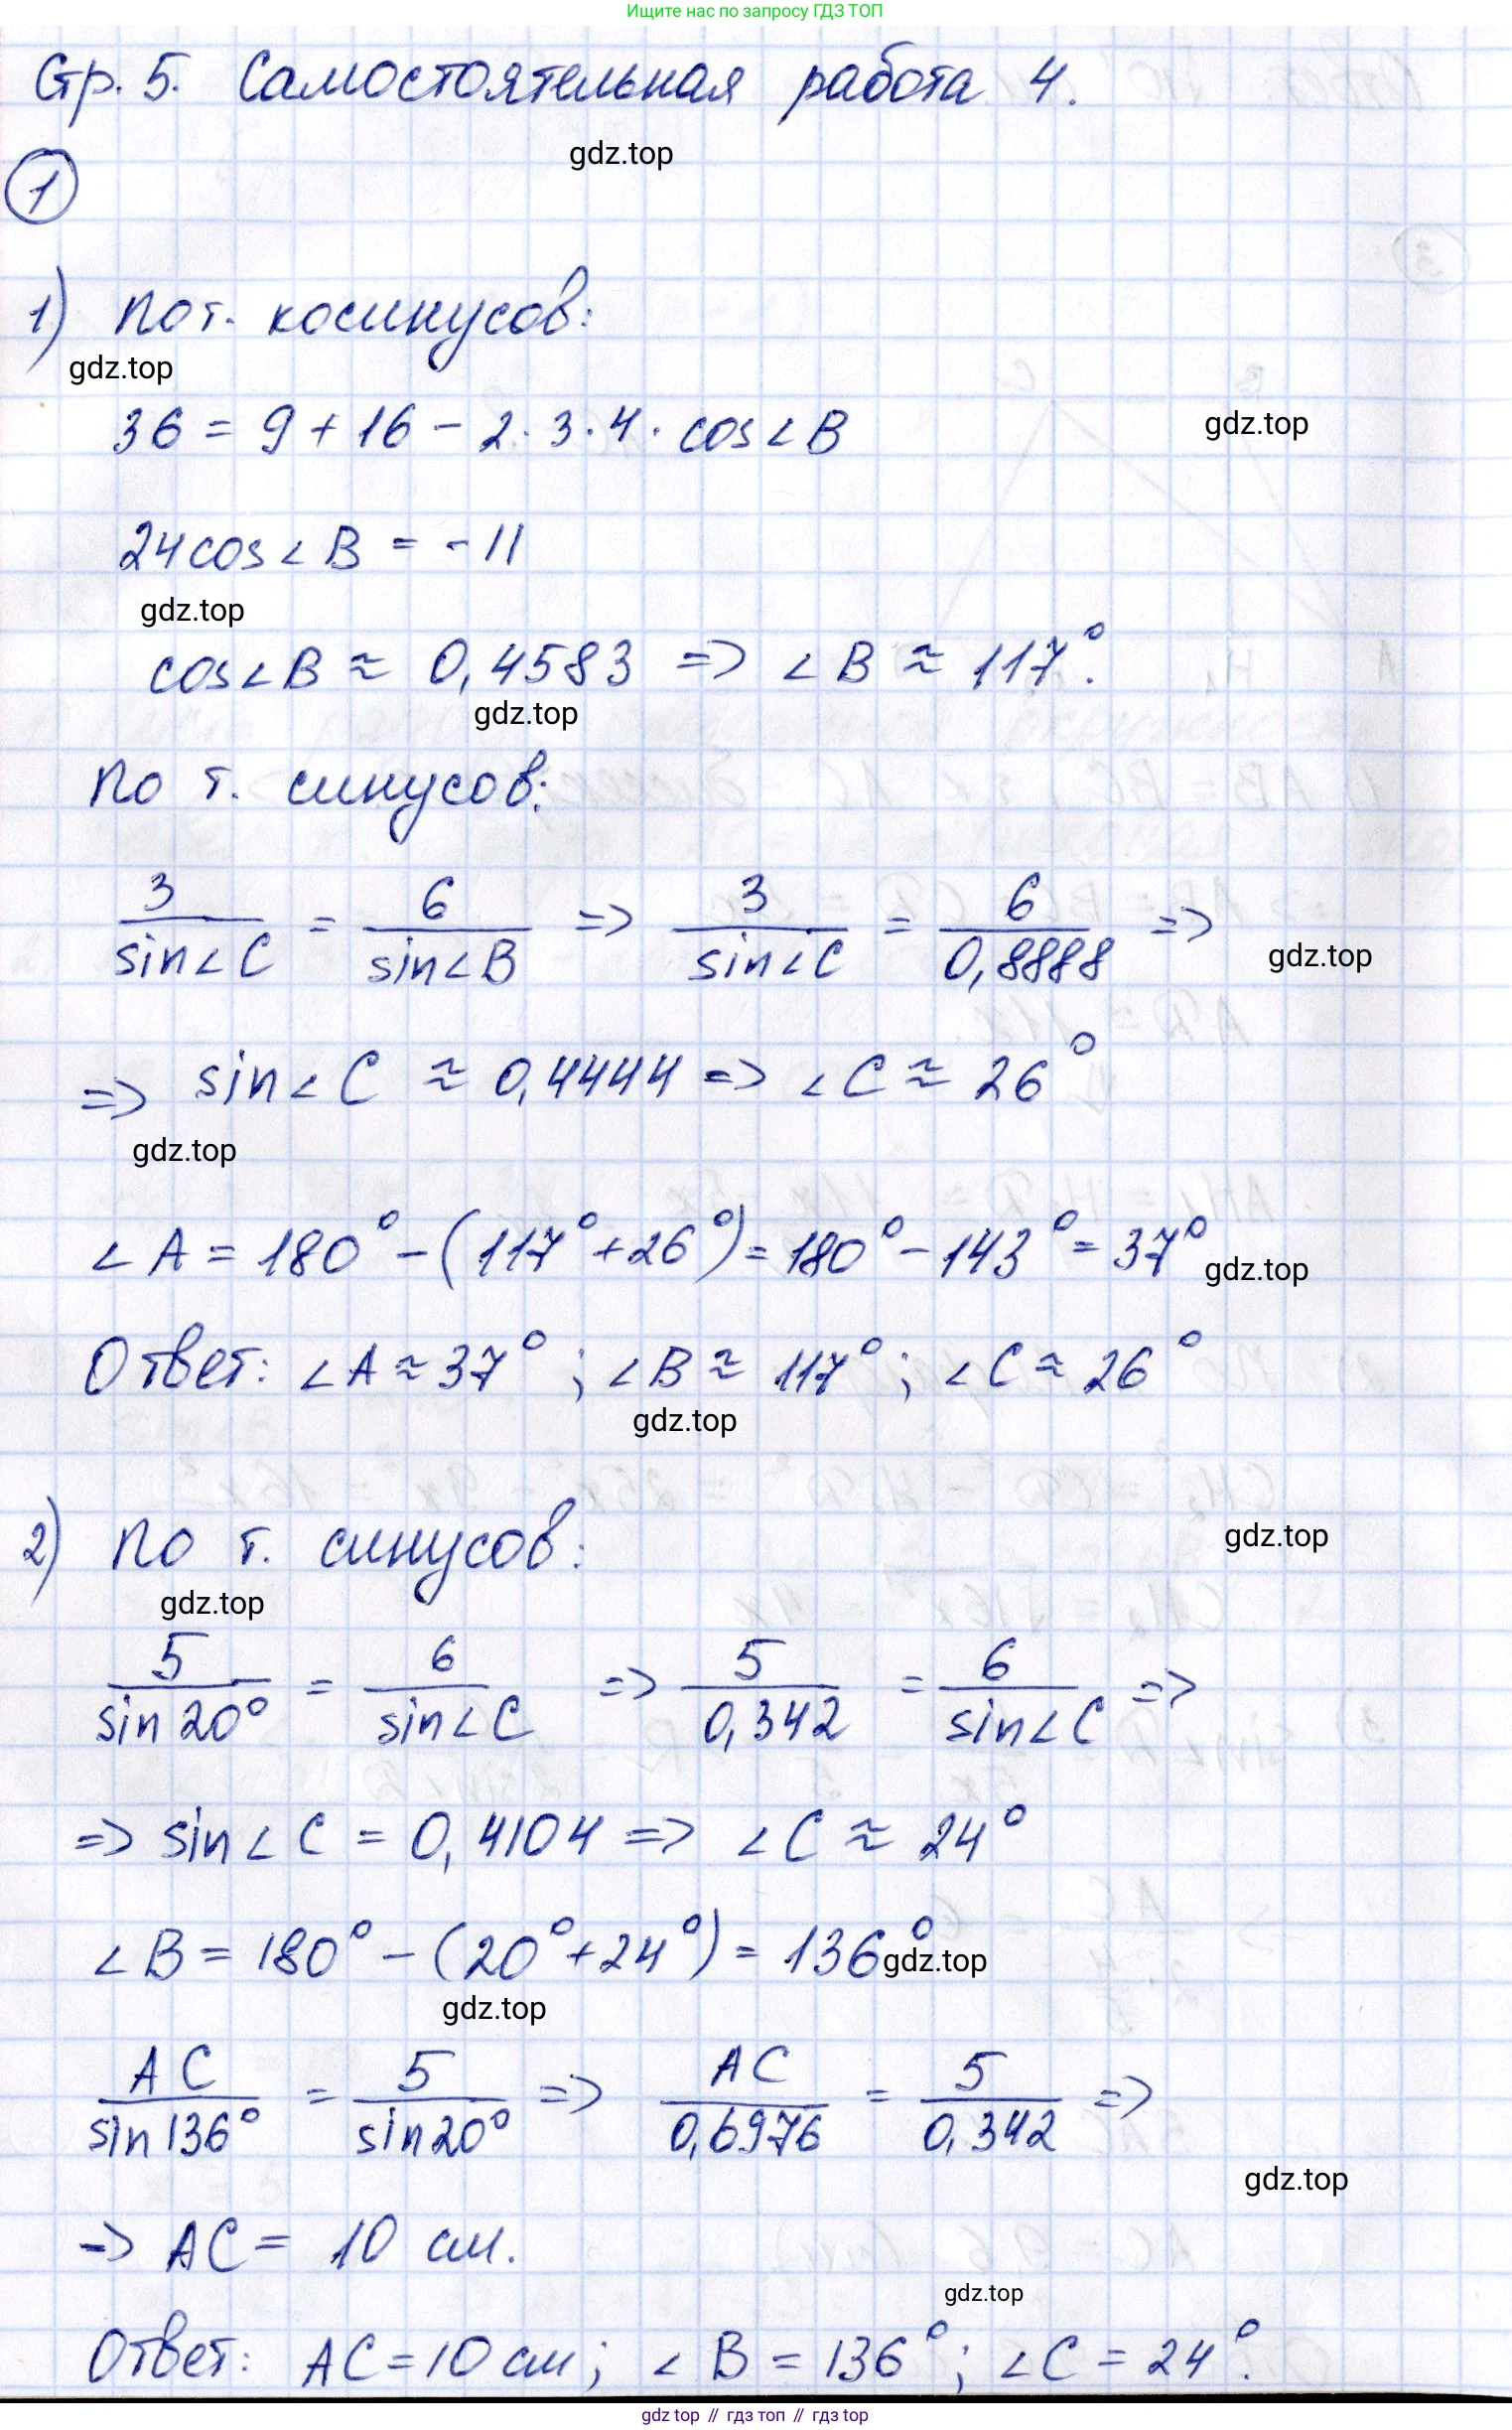 Ищите нас по запросу ГДЗ ТОП
Стр. 5. Самостоятельная работа 4.
gdz.top
1
1) По т. косинусов:
gdz.top
36 = 9 + 16 - 2 · 3 · 4 · cos∠B
gdz.top
24cos∠B = -11
gdz.top
cos∠B ≈ 0,4583 => ∠B ≈ 117°.
gdz.top
По т. синусов:
3/sin∠C = 6/sin∠B => 3/sin∠C = 6/0,8888 =>
gdz.top
=> sin∠C ≈ 0,4444 => ∠C ≈ 26°
gdz.top
∠A = 180° - (117° + 26°) = 180° - 143° = 37°
gdz.top
Ответ: ∠A ≈ 37°; ∠B ≈ 117°; ∠C ≈ 26°
gdz.top
2) По т. синусов:
gdz.top
gdz.top
5/sin20° = 6/sin∠C => 5/0,342 = 6/sin∠C =>
=> sin∠C = 0,4104 => ∠C ≈ 24°
∠B = 180° - (20° + 24°) = 136°
gdz.top
gdz.top
AC/sin136° = 5/sin20° => AC/0,6976 = 5/0,342 =>
gdz.top
=> AC = 10 см.
gdz.top
Ответ: AC = 10 см; ∠B = 136°; ∠C = 24°.
gdz top // гдз топ // гдз top